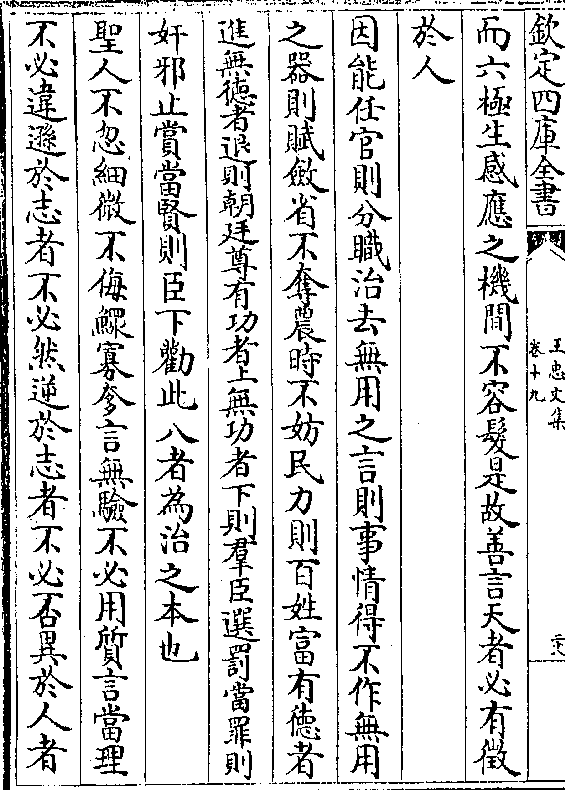 欽定四庫全書
王忠文集
卷十九
而六極生感應之機間不容髮是故善言天者必有徵
於人
因能任官則分職治去無用之言則事情得不作無用
之器則賦斂省不奪農時不妨民力則百姓富有徳者
進無徳者退則朝廷尊有功者上無功者下則羣臣選罰當罪則
奸邪止賞當賢則臣下勸此八者為治之本也
聖人不忽細微不侮鰥寡夸言無驗不必用質言當理
不必違遜於志者不必然逆於志者不必否異於人者